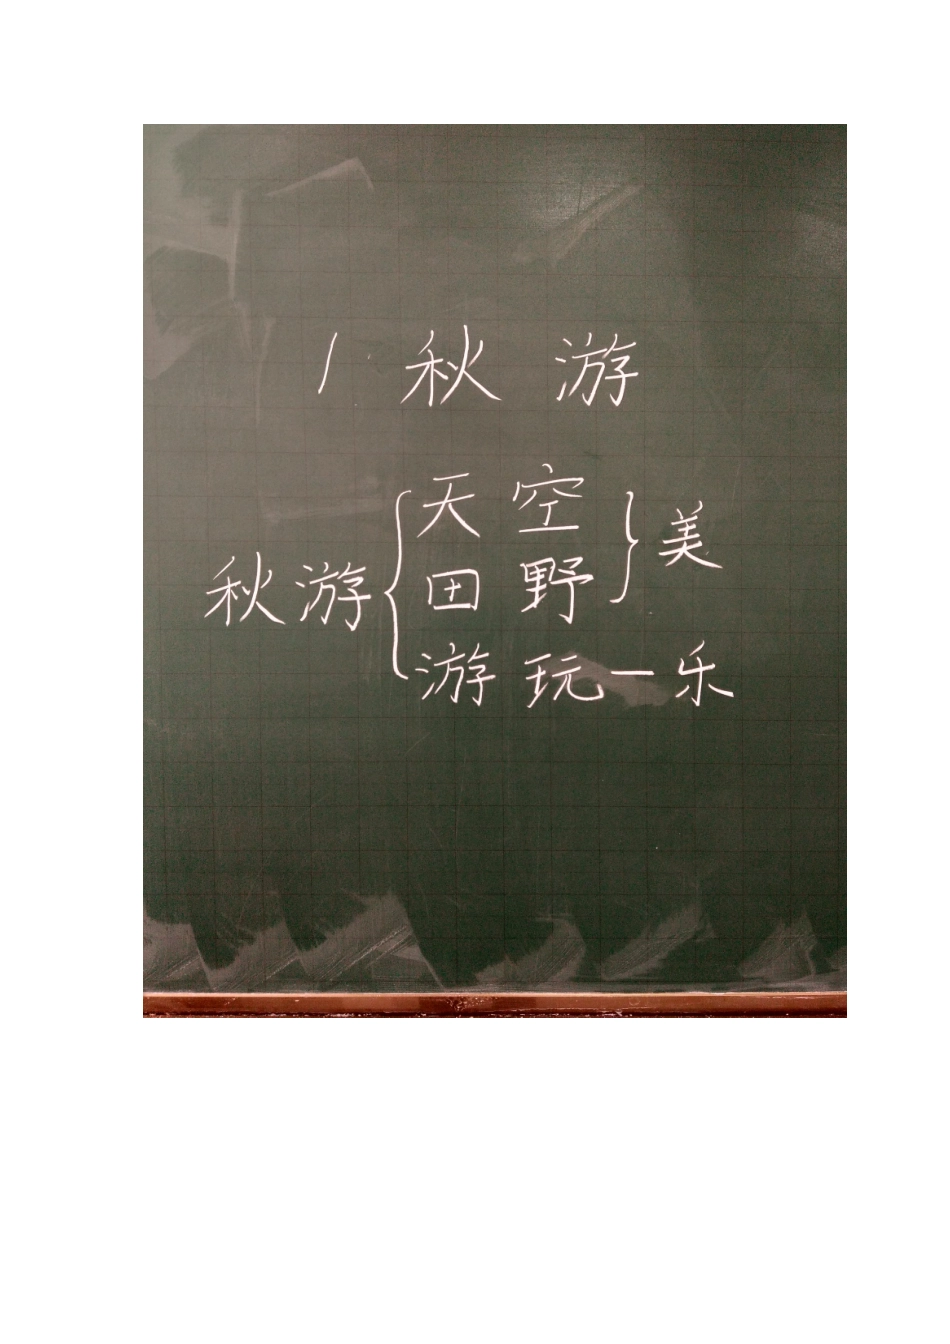 1. 秋 游
天 空
田 野
} 美
秋游 {
游 玩 — 乐